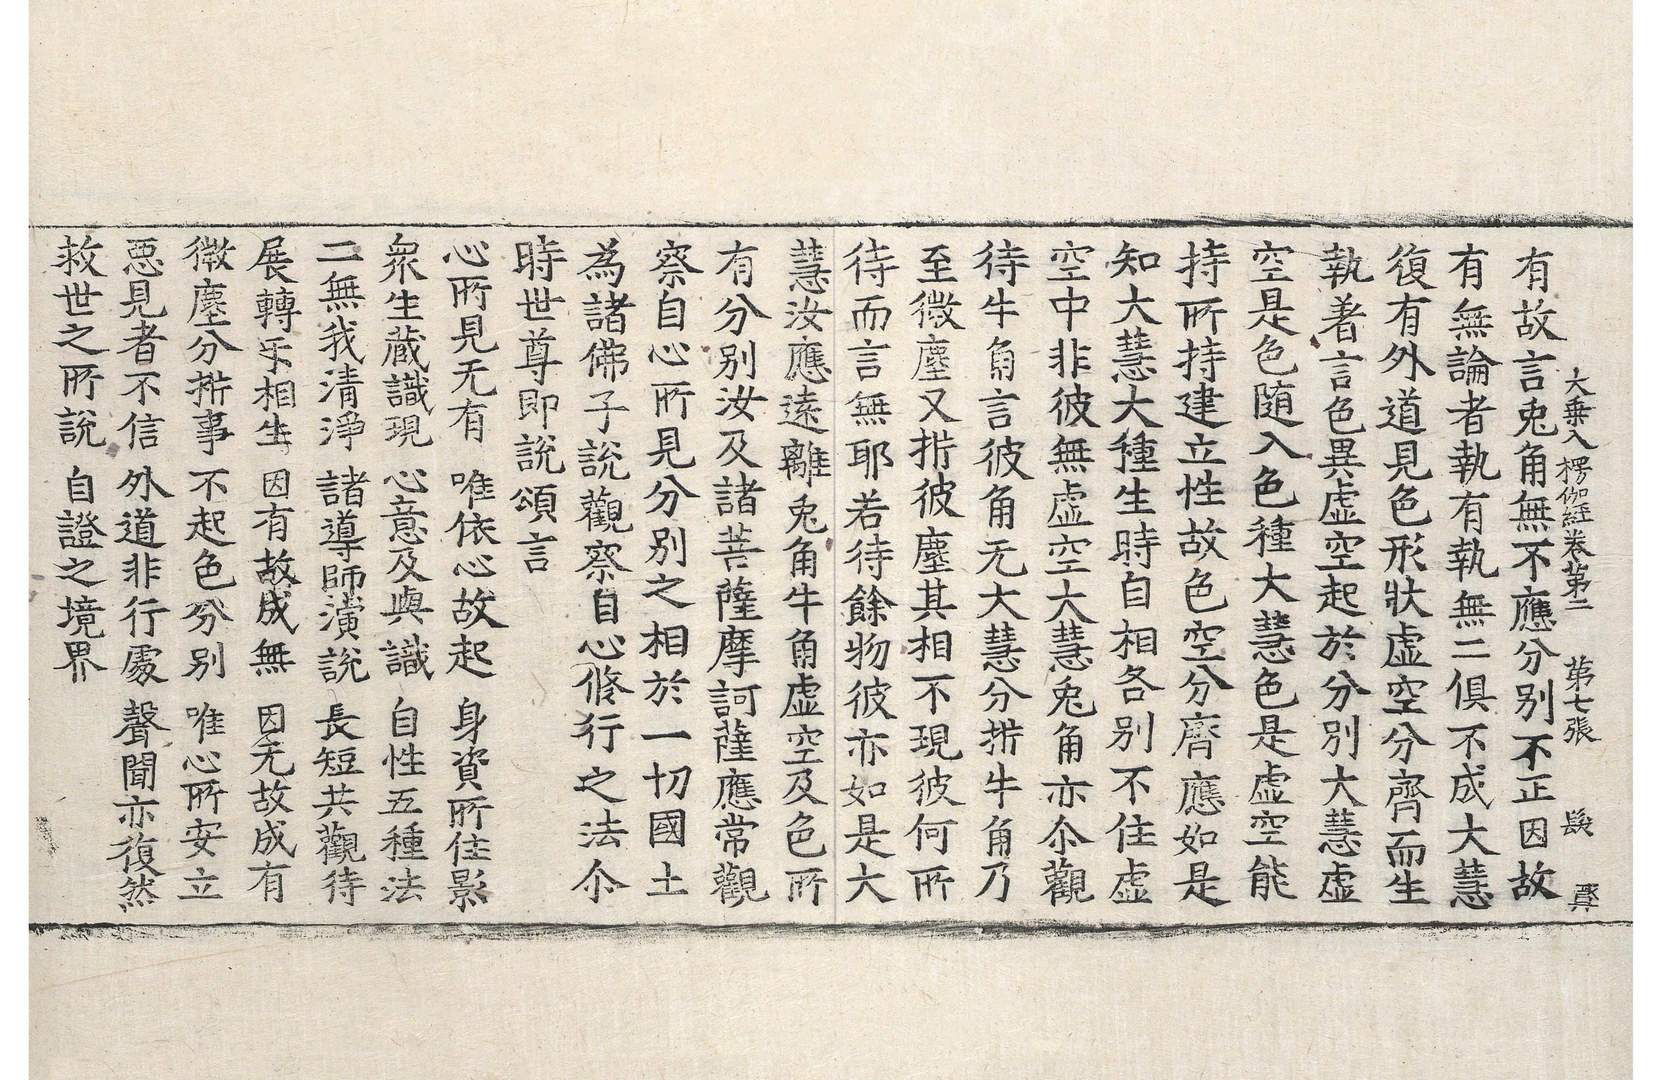 大乗入楞伽経卷第二 第七張 髮
有故言兎角無不應分别不正因故
有無論者執有執無二俱不成大慧
復有外道見色形狀虛空分齊而生
執著言色異虛空起於分別大慧虛
空是色随入色種大慧色是虛空能
持所持建立性故色空分齊應如是
知大慧大種生時自相各别不住虛
空中非彼無虛空大慧兎角亦尒觀
待牛角言彼角无大慧分析牛角乃
至微塵又析彼塵其相不現彼何所
待而言無耶若待餘物彼亦如是大
慧汝應遠離兎角牛角虛空及色所
有分別汝及諸菩薩摩訶薩應常觀
察自心所見分別之相於一切國土
為諸佛子說觀察自心脩行之法尒
時世尊即說頌言
心所見无有 唯依心故起 身資所住影
衆生蔵識現 心意及與識 自性五種法
二無我清淨 諸導師演說 長短共觀待
展轉乎相生 因有故成無 因无故成有
微塵分析事 不起色分別 唯心所安立
惡見者不信 外道非行處 聲聞亦復然
救世之所說 自證之境界